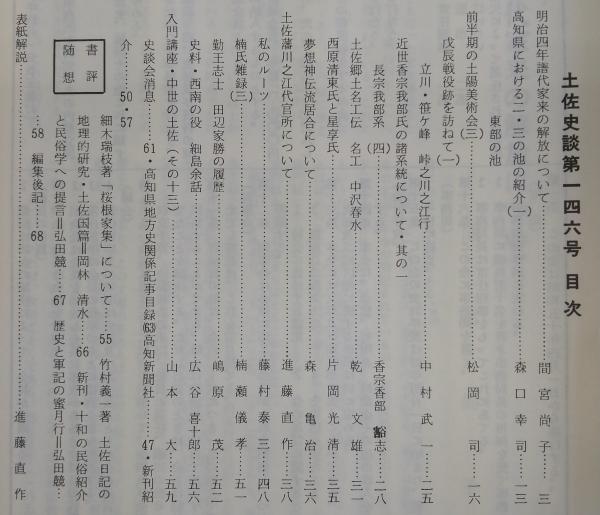 土佐史談第一四六号 目次
明治四年譜代家来の解放について……間宮尚子…三
高知県における二・三の池の紹介(一)……森口幸司…一三
東部の池
前半期の土陽美術会(三)……松岡司…一六
戊辰戦役跡を訪ねて(一)
立川・笹ケ峰 峠之川之江行……中村武一…二五
近世香宗我部氏の諸系統について・其の一
長宗我部系(四)……香宗香部豁志…二八
土佐郷土名工伝 名工 中沢春水……乾文雄…三一
西原清東氏と星亨氏……片岡光清…三五
夢想神伝流居合について……森亀治…三六
土佐藩川之江代官所について……進藤直作…三八
私のルーツ……藤村泰三…四八
楠氏雑録(三)……楠瀬儀孝…五一
勤王志士 田辺家勝の履歴……嶋原茂…五二
史料・西南の役 細島余話……広谷喜十郎…五六
入門講座・中世の土佐(その十三)……山本大…五九
史談会消息……61・高知県地方史関係記事目録(63)高知新聞社……47・新刊紹
介……50・57
書評
随想
細木瑞枝著「桜根家集」について……55 竹村義一著 土佐日記の
地理的研究・土佐国篇‖岡林 清水……66 新刊・十和の民俗紹介
と民俗学への提言‖弘田競……67 歴史と軍記の蜜月行‖弘田競…
…58 編集後記……68
表紙解説……進藤直作